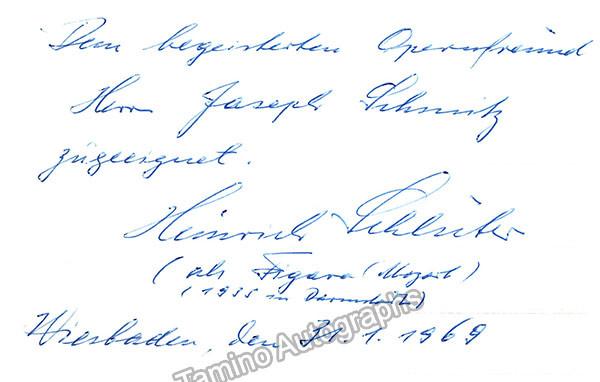 Dem begeisterten Opernfreund
Herrn Joseph Schmitz
zugeeignet.
Heinrich Schlüter
(als Figaro (Mozart)
(1935 in Darmstadt)
Wiesbaden, den 31.1.1969
Tamino Autographs